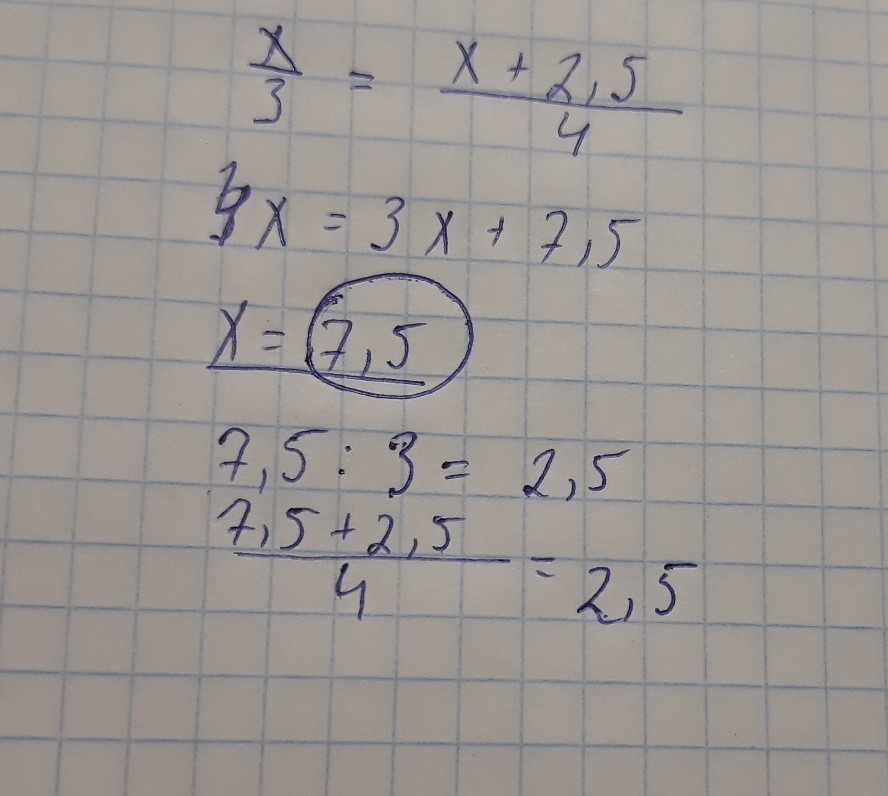 x/3 = (x + 2,5)/4
4x = 3x + 7,5
x = 7,5
7,5 : 3 = 2,5
(7,5 + 2,5)/4 = 2,5